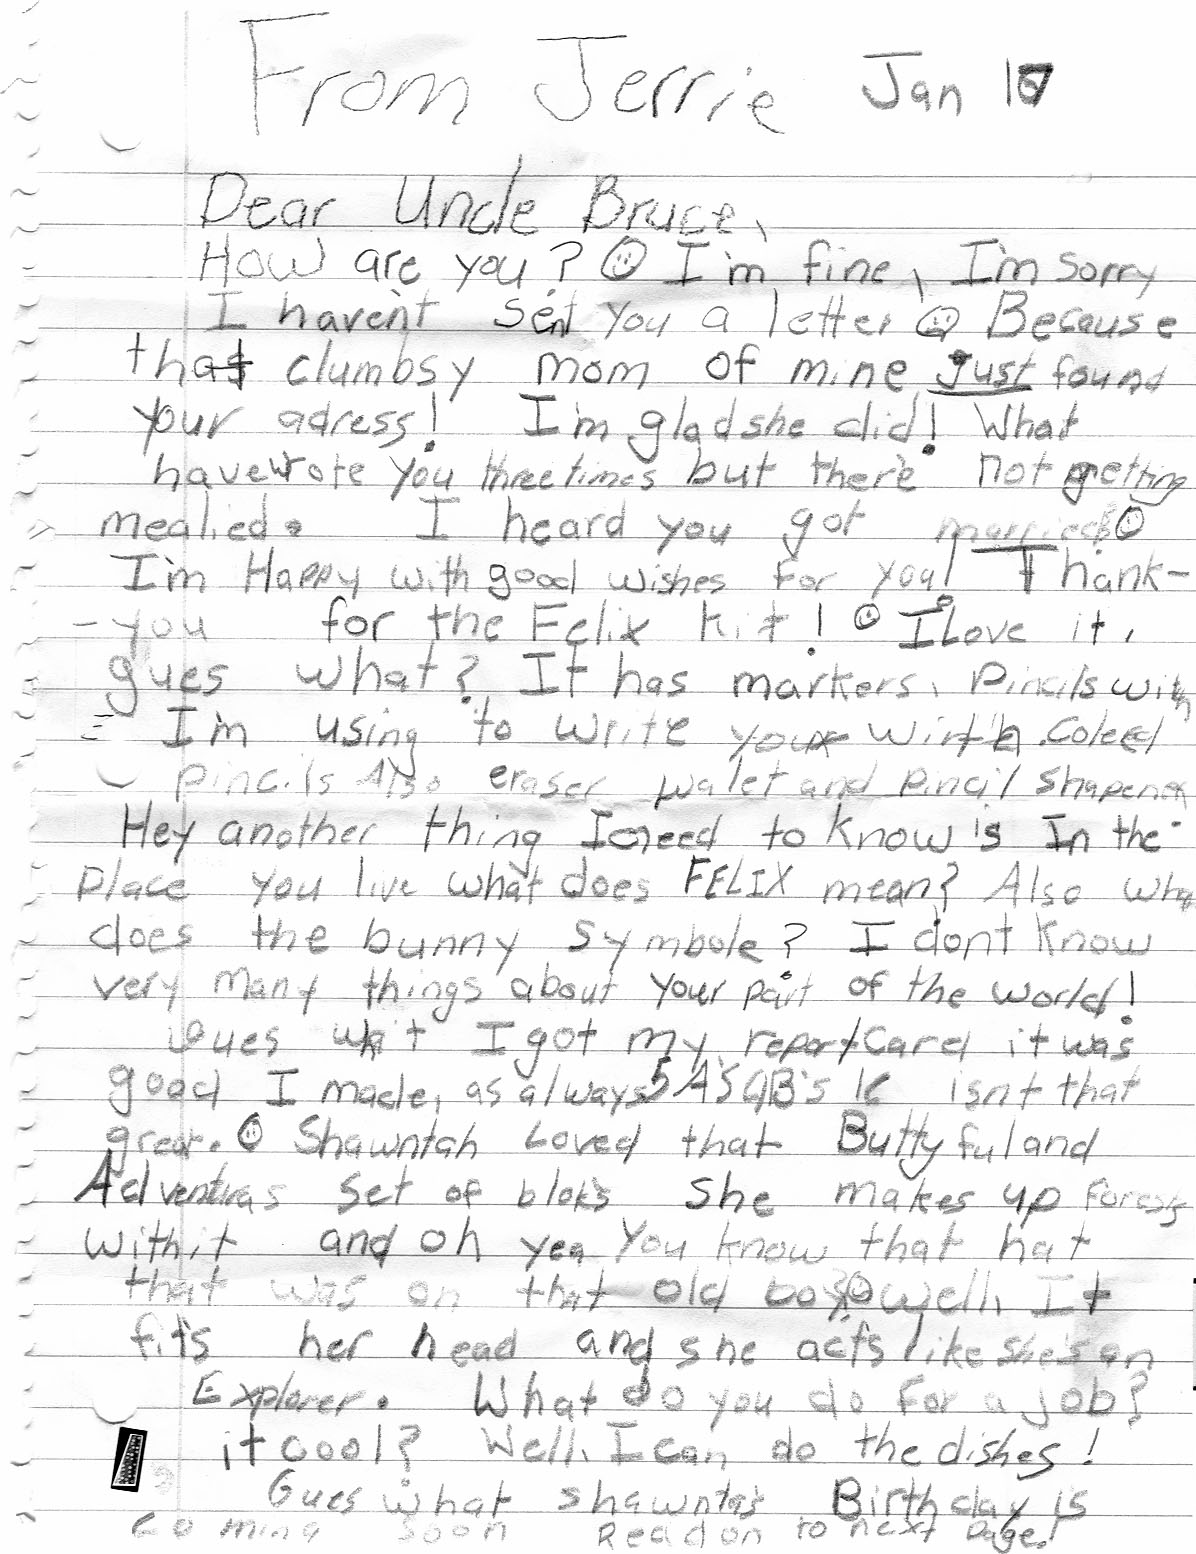 From Jerrie Jan 17
Dear Uncle Bruce,
How are you? I'm fine, I'm sorry
I haven't sent you a letter Because
that clumbsy mom of mine just found
your adress! I'm glad she did! What
have wrote you three times but there not getting
mealied. I heard you got married
I'm Happy with good wishes for you! Thank-
-you for the Felix kit! I Love it,
gues what? It has markers, Pincils with
I'm using to write your with. Coleed
pincils Also eraser walet and Pincil shapener
Hey another thing I need to know is In the
Place you live what does FELIX mean? Also what
does the bunny symbole? I dont know
very many things about your part of the world!
Gues what I got my report Card it was
good I made, as always 5 A's 9B's 1C isnt that
great. Shawntah Loved that Buttyful and
Adventuras set of bloks she makes up forests
with it and oh yea you know that hat
that was on that old boy? well, It
fits her head and she acts like she's an
Explorer. What do you do for a job?
it cool? Well, I can do the dishes!
Gues what shawnta's Birthday is
Coming soon Read on to next page!